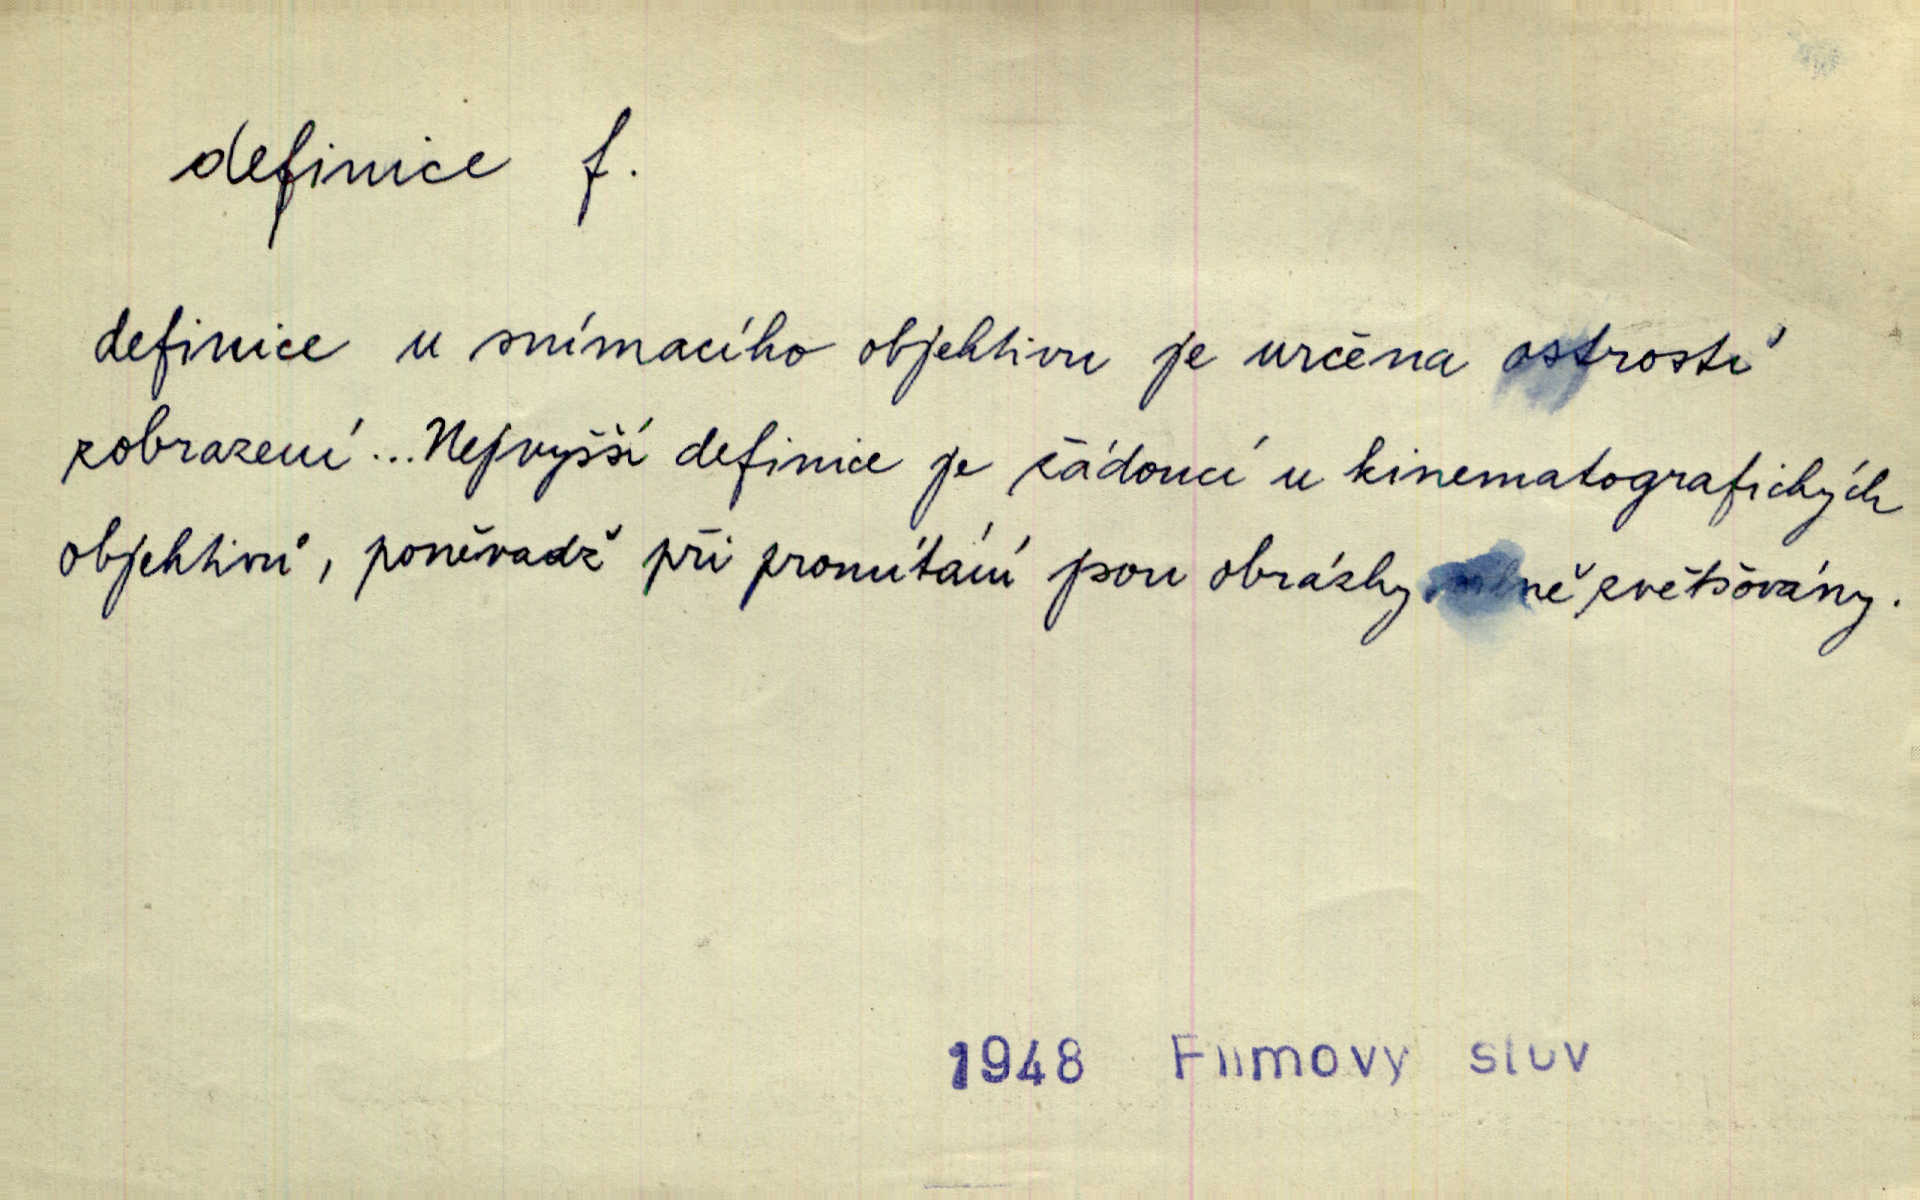 definice f.
definice u snímacího objektivu je určena ostrostí
zobrazení ... Nejvyšší definice je žádoucí u kinematografických
objektivů, poněvadž při promítání jsou obrázky silně zvětšovány.
1948 Filmový slov